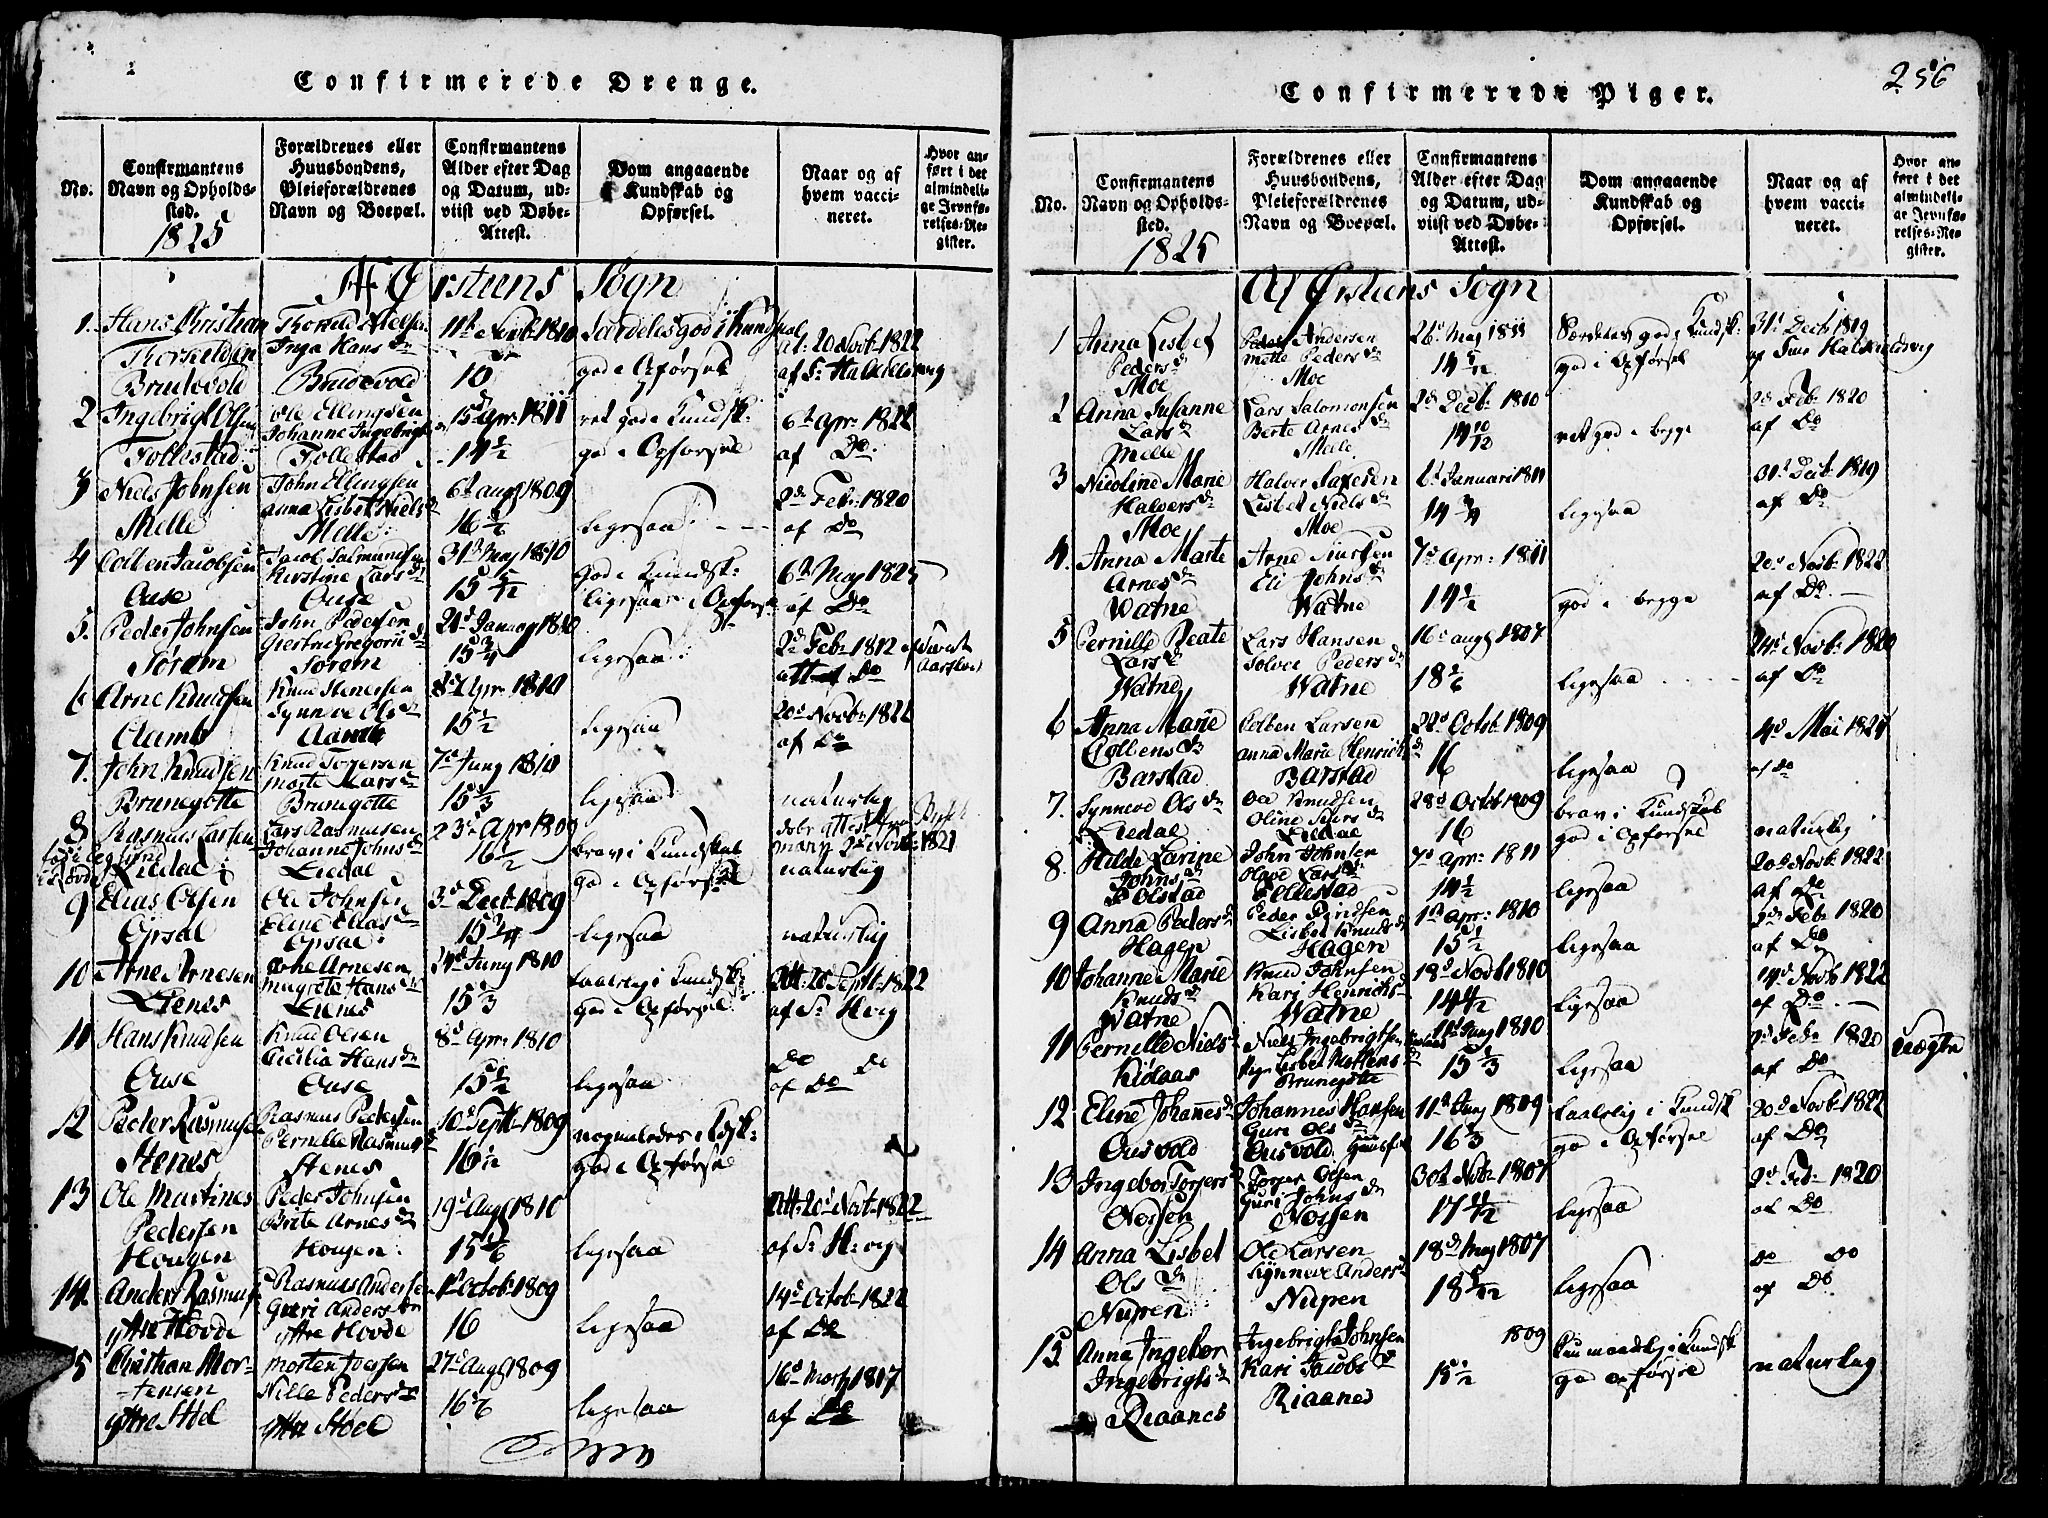 Confirmerede Drenge.
No.
Confirmantens Navn og Opholdssted.
1825
Forældrenes eller Huusbondens, Pleieforældrenes Navn og Boepæl.
Confirmantens Alder efter Dag og Datum, udviist ved Døbe-Attest.
Dom angaaende Kundskab og Opførsel.
Naar og af hvem vaccineret.
Hvor anført i det almindelige Jevnførelses-Register.
Af Ørstiens Sogn
1. Hans Christian Thorkildsen
Brudevold
Inga Hans dr
Brudevold
11te Novb 1810
15
Særdeles god i Kundskab
god i Opførsel
20 Novb: 1822
2 Ingebrigt Olsen
Follestad
Ole Ellingsen
Follestad
15 Apr: 1811
14½
ret god i Kundsk:
god i Opførsel
6te Apr: 1822
af Do
3 Niels Johnsen
Melle
John Ellingsen
Anna Lisbet Niels dr
Melle
6te Augs 1809
ligesaa
2d Feb: 1820
af Do
4 Colben Jacobsen
Ouse
Kirstine Lars dr
Ouse
31te May 1810
god i Kundsk:
ligesaa i Opførsel
6te May 1825
af Do
5. Peder Johnsen
Sørem
John Pedersen
Sørem
15¾
ligesaa
2d Feb: 1812
6 Arne Knudsen
Aamb
Knud Stenersen
Synneve Ols dr
Apr: 1810
15½
ligesaa
20d Novb: 1822
af Do
7. John Knudsen
Brunegotte
Marte Lars dr
Brunegotte
7d Juny 1810
15⅓
ligesaa
naturlig
8 Rasmus Larsen
Liedal
Lars Rasmusen
Johanne Johns dr
Liedal
23d Apr 1809
16½
brav i Kundskab
god i Opførsel
naturlig
9 Elias Olsen
Opsal
Ole Johnsen
Eline Elias dr
Opsal
3d Decb 1809
15¾
ligesaa
naturlig
10 Arne Arnesen
Lienes
Arne Arnesen
Magrete Hans dr
Lienes
24d Juny 1810
15⅓
taalelig i Kundsk
god i Opførsel
Att: 20 Septb: 1822
af Sr Hvig
11 Hans Knudsen
Ouse
Knud Olsen
Cicilia Hans dr
Ouse
8d Apr: 1810
15½
ligesaa
Do Do
af Do
12 Peder Rasmusen
Stenes
Rasmus Pedersen
Pernille Rasmus dr
Stenes
10d Septb: 1809
god i Opførsel
13 Ole Martines Pedersen
Hougen
Peder Johnsen
Brite Arnes dr
Hougen
19d Augs 1810
ligesaa
Att: 20d Novb: 1822
af Sr Hvig
14. Anders Rasmus
ytre Hovde
Rasmus Andersen
Guri Anders dr
ytre Hovde
1d Octob 1809
16
ligesaa
14d Octob 1822
af Do
15 Christian Mortensen
ytre Støel
Nille Peders dr
ytre Støel
27d Augs 1809
ligesaa
16d Marty 1817
af Do
256
Confirmerede Piger.
No.
Confirmantens Navn og Opholdssted.
1825
Forældrenes eller Huusbondens, Pleieforældrenes Navn og Boepæl.
Confirmantens Alder efter Dag og Datum, udviist ved Døbe-Attest.
Dom angaaende Kundskab og Opførsel.
Naar og af hvem vaccineret.
Hvor anført i det almindelige Jevnførelses-Register.
Af Ørstiens Sogn
1 Anna Lisbet
Peders dr
Moe
Peder Andersen
Mette Peders dr
Moe
26d May 1811
Særdeles god i Kundsk:
god i Opførsel
31d Decb 1819
2 Anna Susanne
Lars dr
Melle
Lars Salomonsen
Berte Arnes dr
Melle
2d Decb: 1810
ret god i begge
2d Feb: 1820
af Do
3 Nicoline Marie
Halvers dr
Moe
Lisbet Niels dr
Moe
Januari 1811
14¾
ligesaa
31d Decb 1819
af Do
4. Anna Marte
Arnes dr
Watne
Eli Johns dr
Watne
7d Apr: 1811
14½
god i begge
20d Novb: 1822
af Do
5 Pernille Beate
Lars dr
Watne
Lars Hansen
Solvei Peders dr
Watne
16d Augs 1807
ligesaa
24d Novb: 1820
af Do
6 Anna Marie
Colbens dr
Barstad
Colben Larsen
Anna Maria Henrichs dr
Barstad
22d Octob 1809
16
ligesaa
4d Mai
af Do
7. Synneve Ols dr
Liedal
Ole Knudsen
Liedal
28d Octob 1809
16
brav i Kundskab
god i Opførsel
naturlig
8. Hilde Larine
Johns dr
Folstad
John Johnsen
Follestad
7d Apr: 1811
14½
ligesaa
20d Novb: 1822
af Do
9 Anna Peders dr
Hagen
Lisbet Knuds dr
Hagen
1d Apr: 1810
15½
ligesaa
2d Feb: 1820
af Do
10 Johanne Marie
Knuds dr
Watne
Knud Johnsen
Kari Henrichs dr
Watne
18d Novb 1810
ligesaa
14d Novb 1822
af Do
11 Pernille Niels dr
Kidaas
Niels Ingebrigtsen
Lisbet Mortens dr
Brunegotte
Juny 1810
15⅓
ligesaa
2d Feb: 1820
af Do
12 Eline Johanes dr
Ousvold
Johannes Hansen
Guri Ols dr
Ousvold
11d Juny 1809
16⅓
taalelig i Kundsk
god i Opførsel
20d Novb: 1822
af Do
13 Ingebor Torgers dr
Nossen
Torger Olsen
Guri Johns dr
Nossen
30d Novb: 1807
ligesaa
2d Feb: 1820
af Do
14 Anna Lisbet
Ols dr
Nupen
Ole Larsen
Synneve Anders dr
Nupen
18d May 1807
ligesaa
Do Do
af Do
15 Anna Ingebor
Ingebrigts dr
Riaanes
Ingebrigt Johnsen
Kari Jacobs dr
Riaanes
1809
15½
Kun maadelig i Kundsk
god Opførsel
naturlig